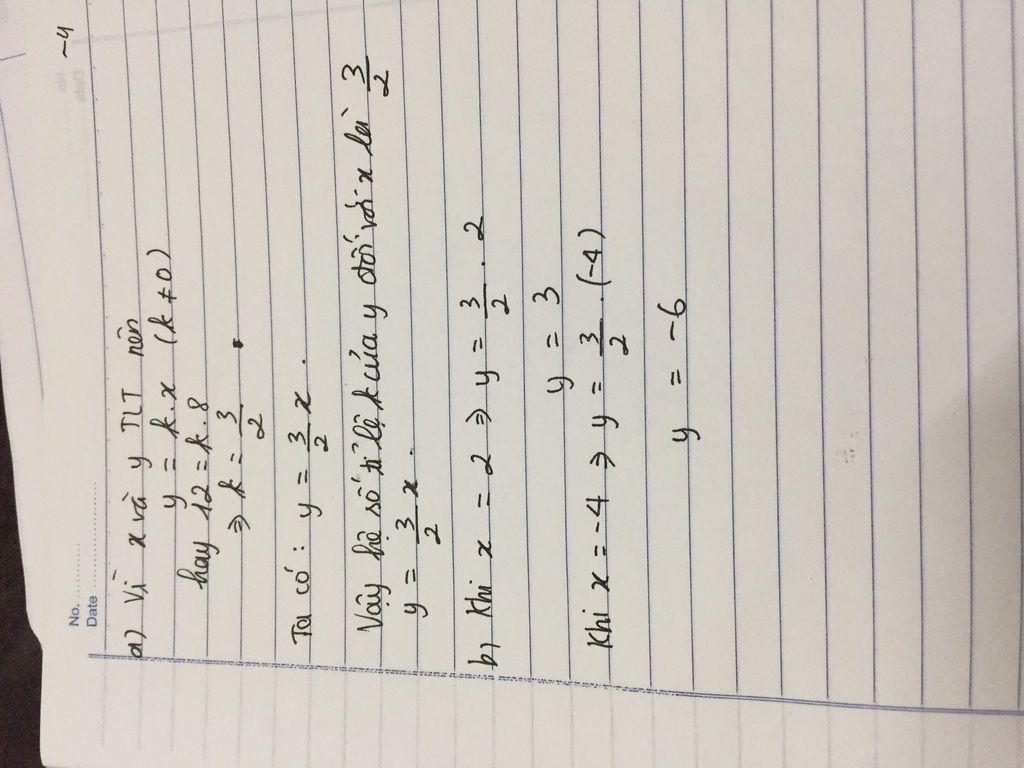 -4
No. ..........
Date ..................
a) Vì x và y TLT nên
y = k.x (k ≠ 0)
hay 12 = k.8
⇒ k = 3/2 .
Ta có: y = 3/2 x .
Vậy hệ số tỉ lệ k của y đối với x là 3/2
y = 3/2 x .
b) Khi x = 2 ⇒ y = 3/2 . 2
y = 3
Khi x = -4 ⇒ y = 3/2 . (-4)
y = -6